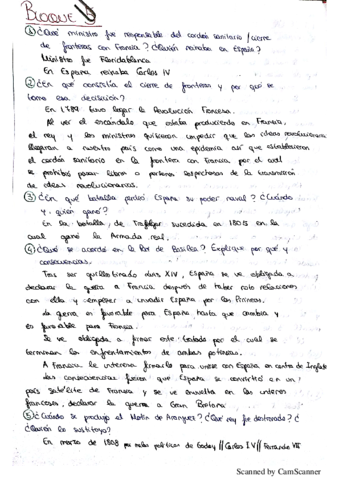 BLOQUE V
① ¿Qué ministro fue responsable del cordón sanitario / cierre
de fronteras con Francia? ¿Quién reinaba en España?
Ministro fue Floridablanca
En España reinaba Carlos IV
② ¿En qué consistía el cierre de fronteras y por qué se
tomó esa decisión?
En 1789 tuvo lugar la Revolución Francesa.
Al ver el escándalo que estaba produciendo en Francia,
el rey y los ministros quisieron impedir que las ideas revolucionarias
llegaran a nuestro país como una epidemia así que establecieron
el cordón sanitario en la frontera con Francia por el cual
se prohibía pasar libros o personas sospechosas de la transmisión
de ideas revolucionarias.
③ ¿En qué batalla perdió España su poder naval? ¿Cuándo
y quién ganó?
En la batalla de Trafalgar sucedida en 1805 en la
cual ganó la Armada real.
④ ¿Qué se acordó en la Paz de Basilea? Explique por qué y
consecuencias.
Tras ser guillotinado Luis XIV, España se ve obligada a
declarar la guerra a Francia después de haber roto relaciones
con ella y empezar a invadir España por los Pirineos.
La guerra es favorable para España hasta que cambia y
es favorable para Francia.
Se ve obligada a firmar este tratado por el cual se
terminan los enfrentamientos de ambas potencias.
A Francia le interesa firmarlo para unirse con España en contra de Inglate
Las consecuencias fueron que España se convirtió en un
país satélite de Francia y se ve envuelta en los intereses
franceses, declarar la guerra a Gran Bretaña.
⑤ ¿Cuándo se produjo el Motín de Aranjuez? ¿Qué rey fue destronado? ¿
¿Quién lo sustituyó?
En marzo de 1808 por malas políticas de Godoy // Carlos IV // Fernando VII
Scanned by CamScanner